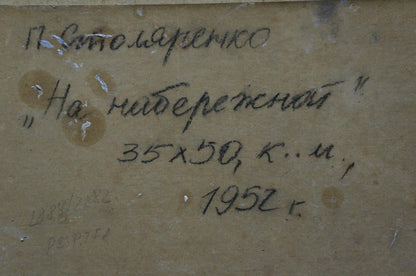 П. Столяренко
„На набережной"
35х50, к.. м.,
1952 г.